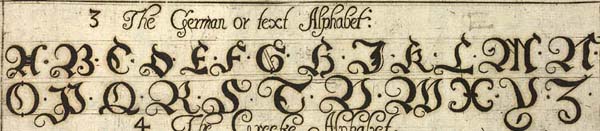 3 The German or text Alphabet:
A·B·C·D·E·F·G·H·I·K·L·M·N·
O·P·Q·R·S·T·V·W·X·Y·Z·
4 The Greeke Alphabet